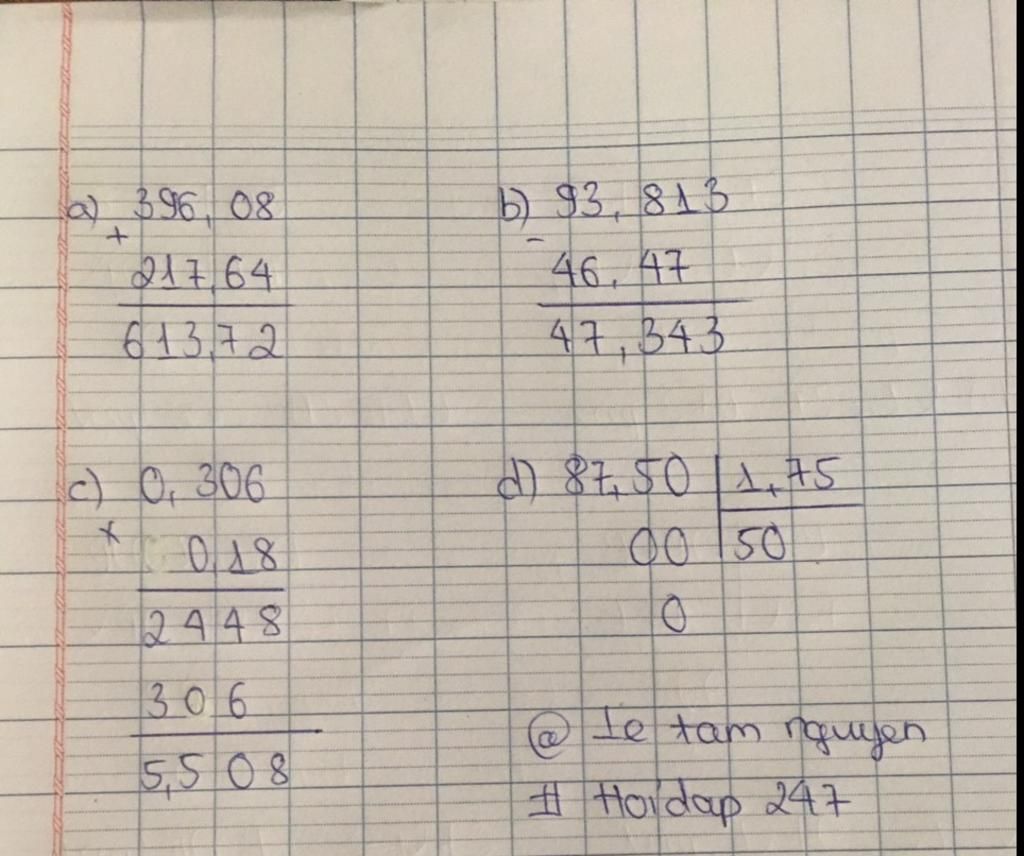 a) 396,08
+
217,64
613,72
b) 93,813
-
46,47
47,343
c) 0,306
x
0,18
2448
306
5,508
d) 87,50 | 1,75
00 | 50
0
@ le tam nguyen
# Hoidap 247